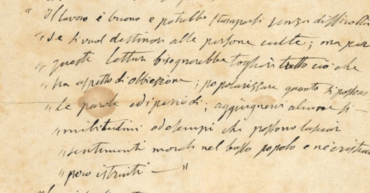 " Il lavoro è buono e potrebbe stamparsi senza difficoltà
" se si vuol destinare alle persone culte; ma per
" queste letture bisognerebbe togliere tutto ciò che
" ha aspetto di obbiezione; popolarizzare quanto si possono
" le parole ed i periodi; aggiungervi alcune si-
" militudini od esempi che possono lasciar
" sentimenti morali nel basso popolo e nei cristiani
" poco istruiti — "